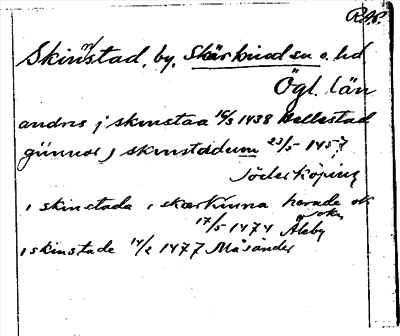 RAP.
Skinnstad, by, Skärkind sn o. hd
Ögl. län
andris j skinstaa 16/2 1438 Hellestad
gunnor j skinstadum 23/5 1457
Söderköping
i skinstada i skærkinna herade ok
sokn
17/5 1474 Åleby
i skinstade 14/2 1477 Måsänder